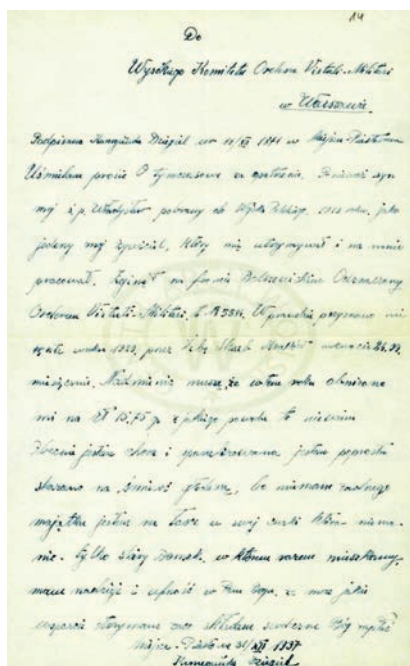 14
Do
Wysokiego Komitetu Orderu Virtuti-Militari
w Warszawie
Podpisana Kunegunda Dziągiel ur 1871 w Miejscu Piastowem
Uśmilam prosić O tymczasowe za opatrzenie. Ponieważ syn
mój ś.p. Władysław pobrany do Wojska Polskiego, roku, jako
jedyny mój żywiciel, który mię utrzymywał i na mnie
pracował. Zginął na froncie Bolszewickim Odznaczony
Orderem Virtuti-Militari, W prawdzie przyznano mi
rentę w roku przez Izbę Skarb
miesięcznie. Nadmienić muszę, że w tem roku obniżono
mi na zł 15,75 g. z jakiego powodu to niewiem
Obecnie jestem chora i sparaliżowana, jestem poprostu
skazana na śmierć głodową, bo niemam żadnego
majątku jestem na łasce u swej curki która niema
nic. tylko stary Domek, w którem razem mieszkamy,
mam nadzieję i ufność w Panu Bogu, że może jakie
wsparcie otrzymam zaco składam serdeczne Bóg zapłać
Miejsce-Piastowe XII 1937
Kunegunda Dziągiel